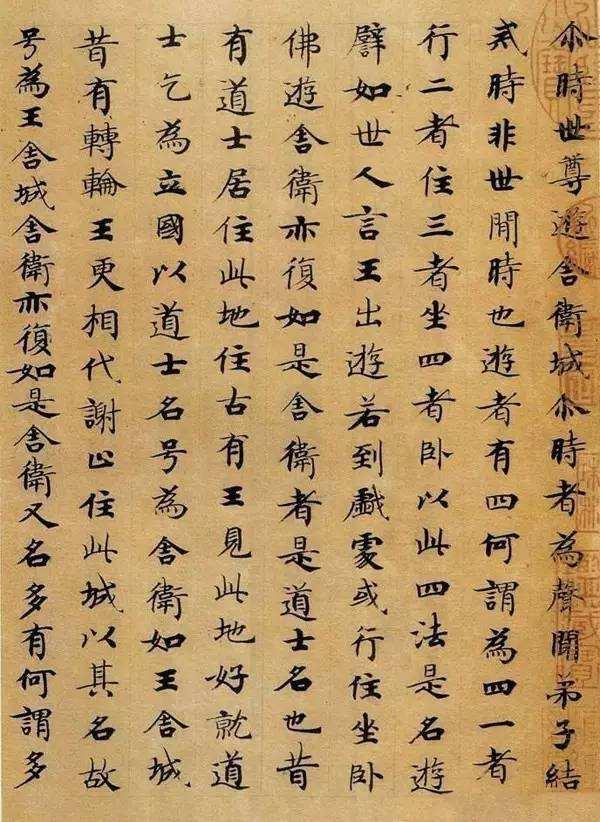 尒時世尊遊舎衛城尒時者為聲聞弟子結
戒時非世閒時也遊者有四何謂為四一者
行二者住三者坐四者卧以此四法是名遊
譬如世人言王出遊若到戱處或行住坐卧
佛遊舎衛亦復如是舎衛者是道士名也昔
有道士居住此地住古有王見此地好就道
士乞為立國以道士名号為舎衛如王舎城
昔有轉輪王更相代謝止住此城以其名故
号為王舎城舎衛亦復如是舎衛又名多有何謂多